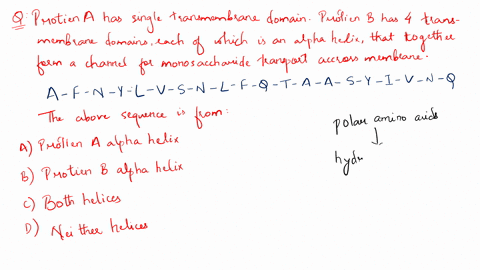 Q Protien A has single transmembrane domain. Protien B has 4 trans-
membrane domains, each of which is an alpha helix, that together
form a channel for monosaccharide transport accross membrane.
A-F-N-Y-L-V-S-N-L-F-Q-T-A-A-S-Y-I-V-N-Q
The above sequence is from:
A) Protien A alpha helix
B) Protien B alpha helix
C) Both helices
D) Neither helices
polar amino acids
↓
hydr